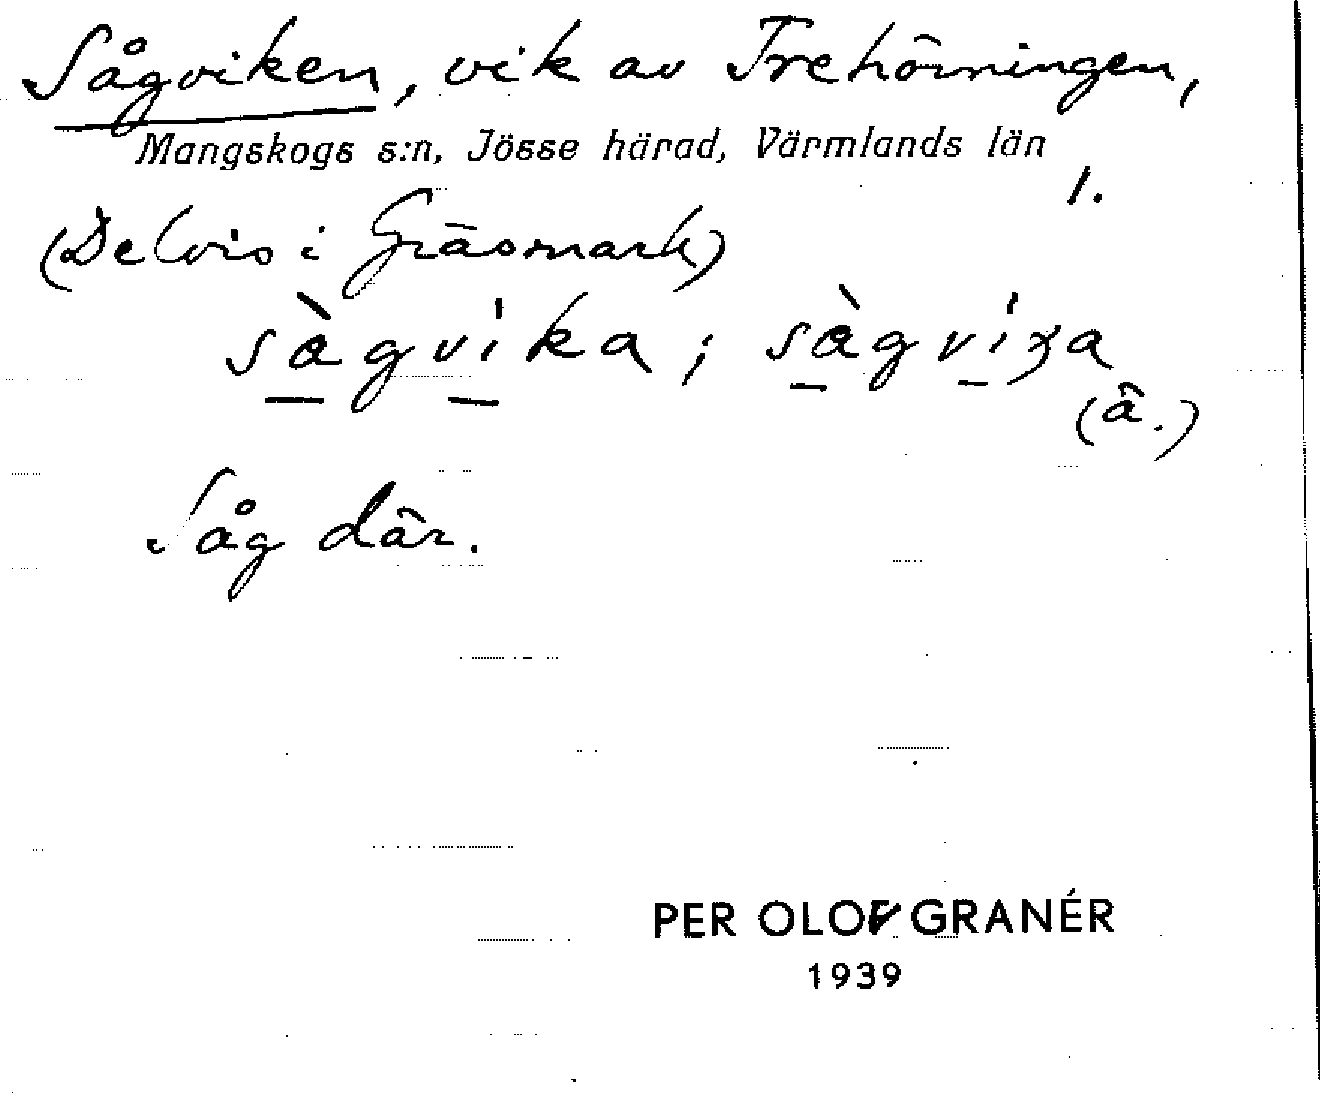 Sågviken, vik av Trehörningen,
Mangskogs s:n, Jösse härad, Värmlands län
1.
(Delvis i Gräsmark)
sàgvika; sàgviʒa
(ä.)
Såg där.
PER OLOV GRANÉR
1939